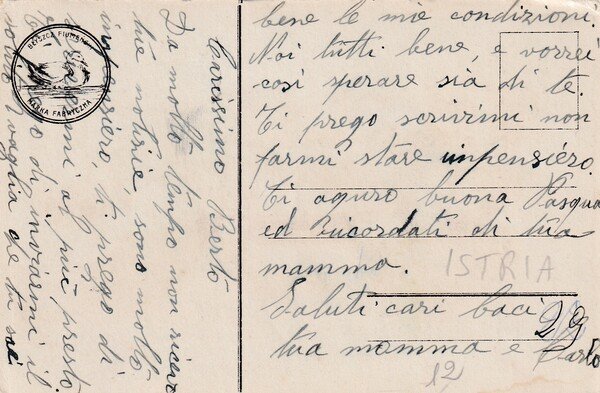 Carissimo Berto
Da molto tempo non ricevo
tue notizie, sono molto
inpensiero, ti prego di
scrivermi al più presto.
prego di inviarmi il
vaglia che tu sai
bene le mie condizioni.
Noi tutti bene, e vorrei
così sperare sia di te.
Ti prego scrivimi non
farmi stare inpensiero.
Ti aguro buona Pasqua
ed ricordati di tua
mamma.
ISTRIA
Saluti cari baci
29
tua mamma e Carlo
12
MARKA FABRYCZNA